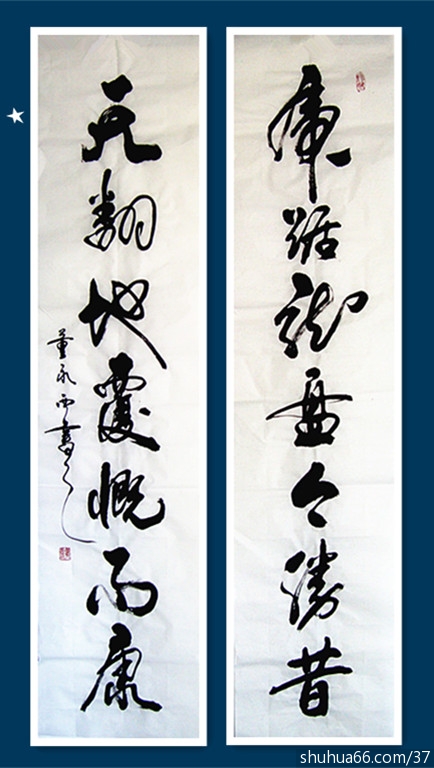 虎踞龍盘今勝昔
天翻地覆慨而康
董永
書
shuhua66.com/37